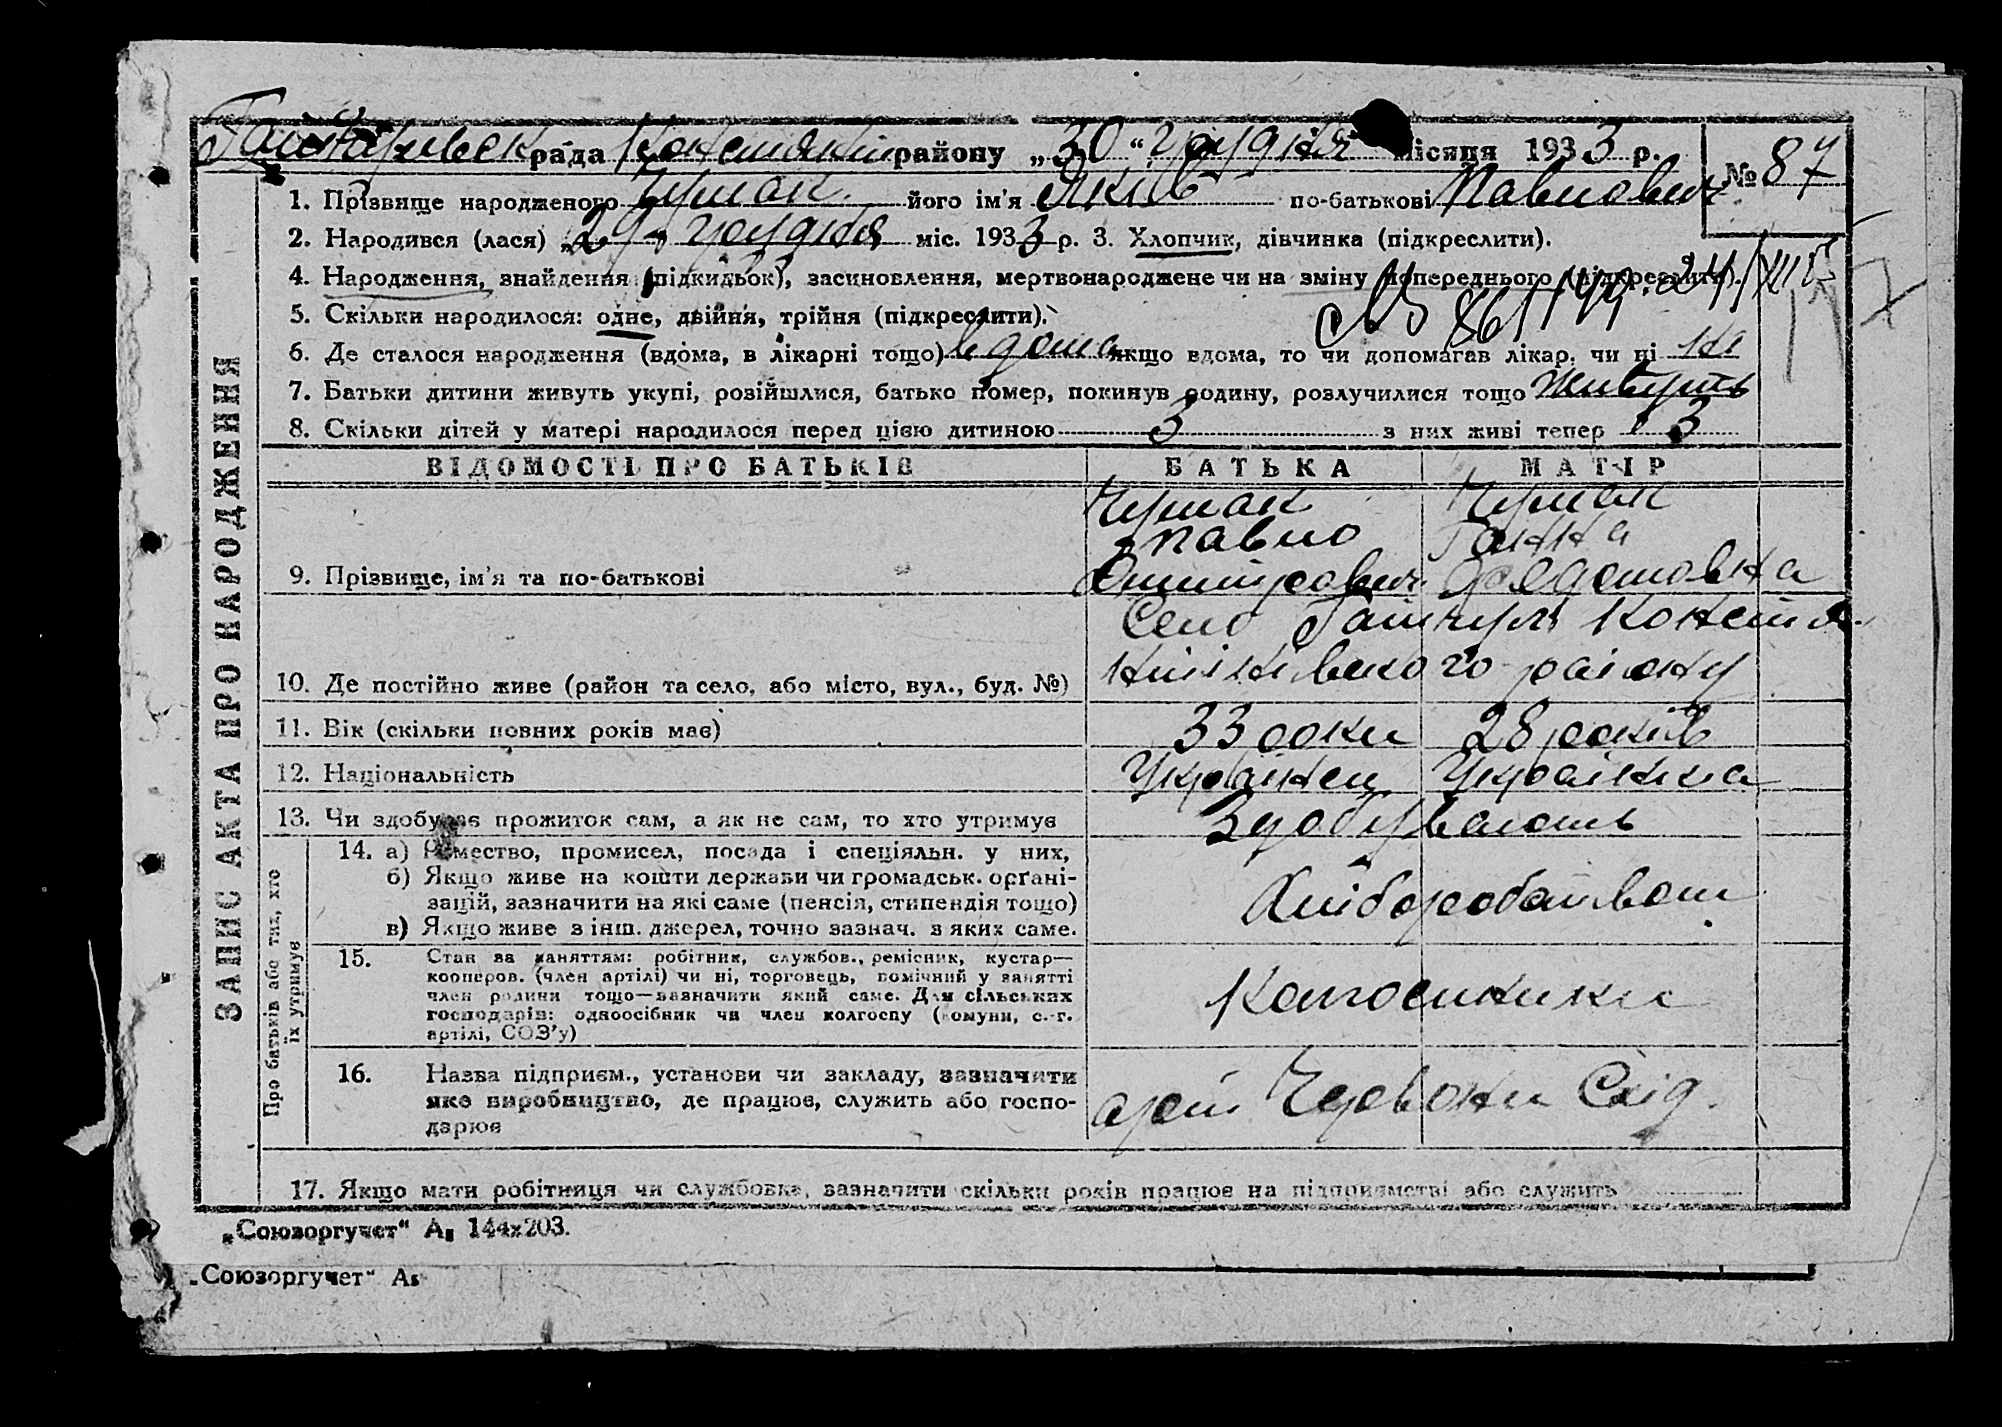 рада району „30“ грудня місяця 1933 р.
№ 87
1. Прізвище народженого Чумак його ім'я Яків по-батькові Павлович
2. Народився (лася) „29“ грудня міс. 1933 р. 3. Хлопчик, дівчинка (підкреслити).
4. Народження, знайдення (підкидьок), засиновлення, мертвонароджене чи на зміну попереднього (підкреслити).
5. Скільки народилося: одне, двійня, трійня (підкреслити).
6. Де сталося народження (вдома, в лікарні тощо) вдома якщо вдома, то чи допомагав лікар, чи ні ні
7. Батьки дитини живуть укупі, розійшлися, батько помер, покинув родину, розлучилися тощо Живуть
8. Скільки дітей у матері народилося перед цією дитиною 3 з них живі тепер 3
ЗАПИС АКТА ПРО НАРОДЖЕННЯ
ВІДОМОСТІ ПРО БАТЬКІВ БАТЬКА МАТІР
Чумак Чумак
Павло Ганна
9. Прізвище, ім'я та по-батькові Дмитрович Федотовна
Село
10. Де постійно живе (район та село, або місто, вул., буд. №) району
11. Вік (скільки повних років має) 33 роки 28 років
12. Національність Українец Українкиа
13. Чи здобуває прожиток сам, а як не сам, то хто утримує Здобувають
Про батьків або тих, хто
їх утримує
14. а) Ремество, промисел, посада і спеціяльн. у них,
б) Якщо живе на кошти держави чи громадськ. органі-
зацій, зазначити на які саме (пенсія, стипендія тощо)
в) Якщо живе з інш. джерел, точно зазнач. з яких саме.
Хліборобством
15. Стан за заняттям: робітник, службов., ремісник, кустар—
кооперов. (член артілі) чи ні, торговець, помічний у занятті
член родини тощо—зазначити який саме. Для сільських
господарів: одноосібник чи член колгоспу (комуни, с.-г.
артілі, СОЗ'у)
Колгоспники
16. Назва підприєм., установи чи закладу, зазначити
яке виробництво, де працює, служить або госпо-
дарює
арт. Червони Схід.
17. Якщо мати робітниця чи службовка, зазначити скільки років працює на підприємстві або служить
„Союзоргучет“ А₅ 144х203.
„Союзоргучет“ А₅